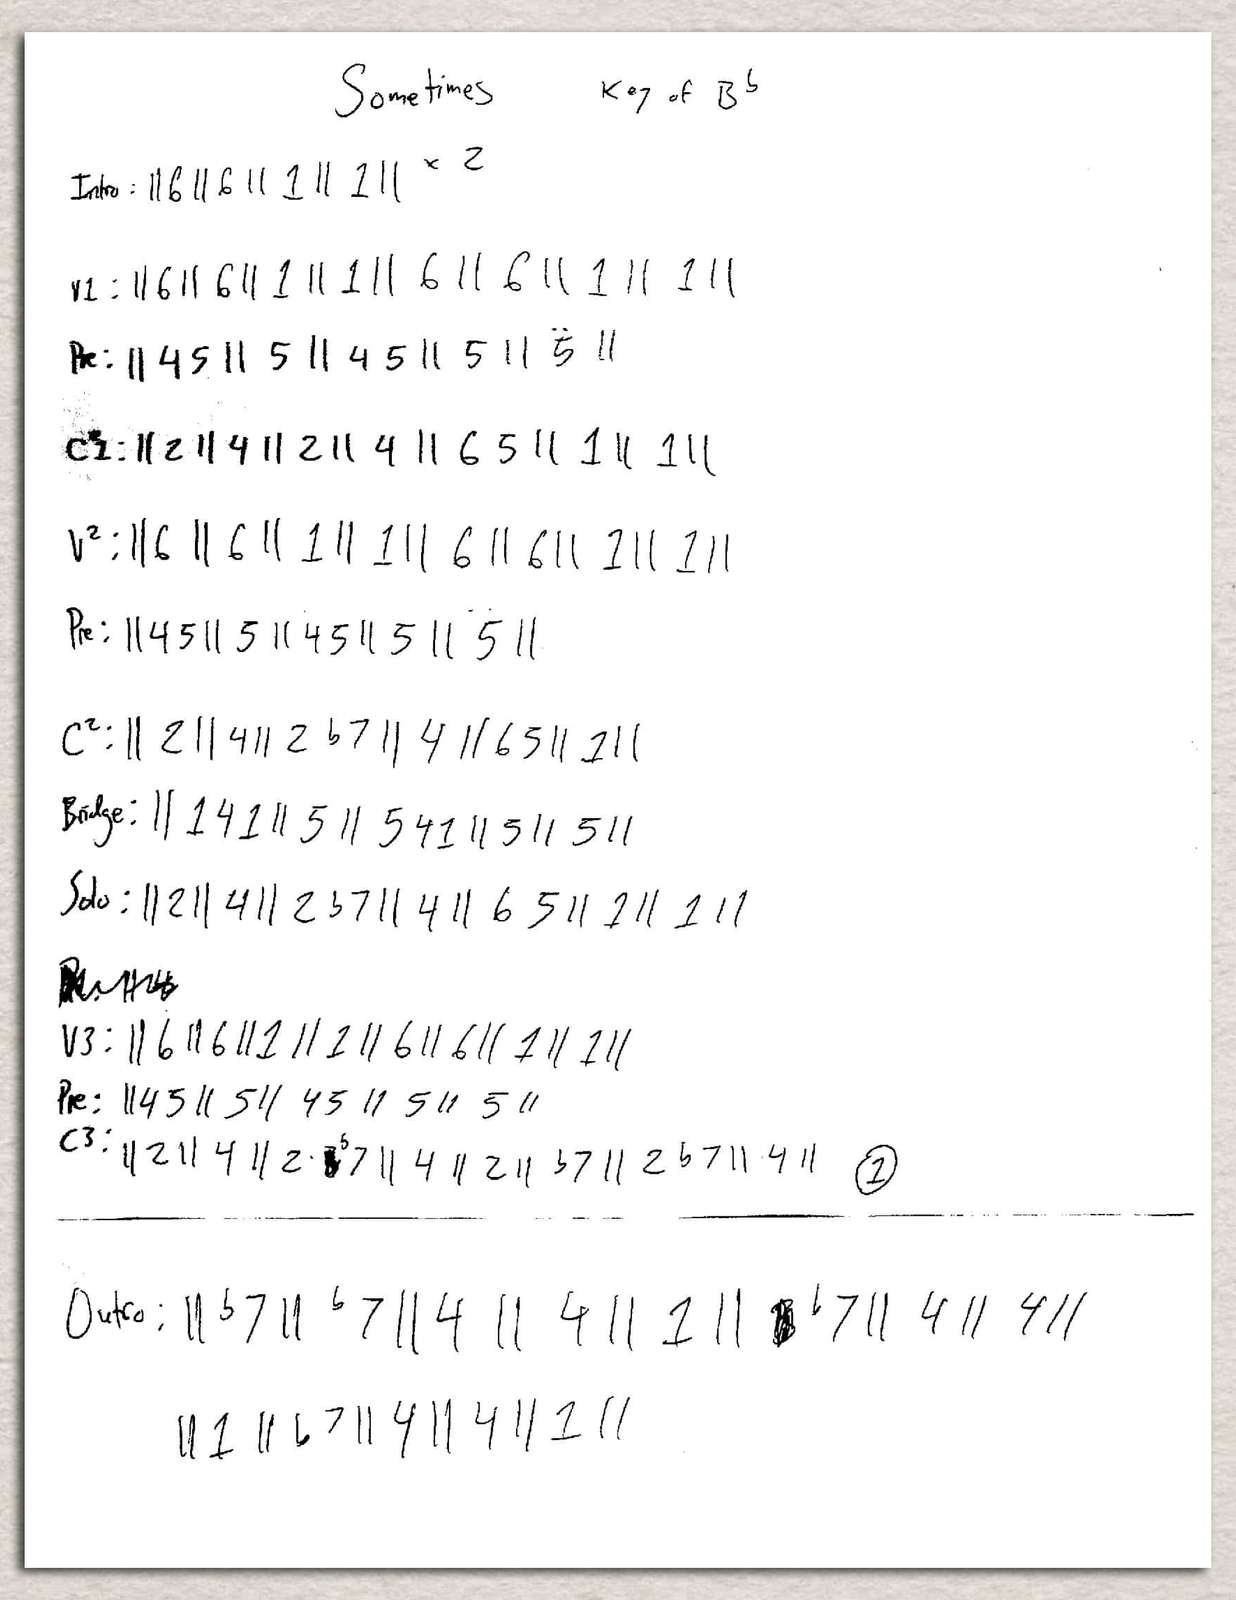 Sometimes Key of Bb
Intro: ||6||6||1||1|| x 2
V1: ||6||6||1||1||6||6||1||1||
Pre: ||4 5||5||4 5||5||5||
C1: ||2||4||2||4||6 5||1||1||
V2: ||6||6||1||1||6||6||1||1||
Pre: ||4 5||5||4 5||5||5||
C2: ||2||4||2 b7||4||6 5||1||
Bridge: ||1 4 1||5||5 4 1||5||5||
Solo: ||2||4||2 b7||4||6 5||1||1||
V3: ||6||6||1||1||6||6||1||1||
Pre: ||4 5||5||4 5||5||5||
C3: ||2||4||2 b7||4||2||b7||2 b7||4|| 1
Outro: ||b7||b7||4||4||1||b7||4||4||
||1||b7||4||4||1||